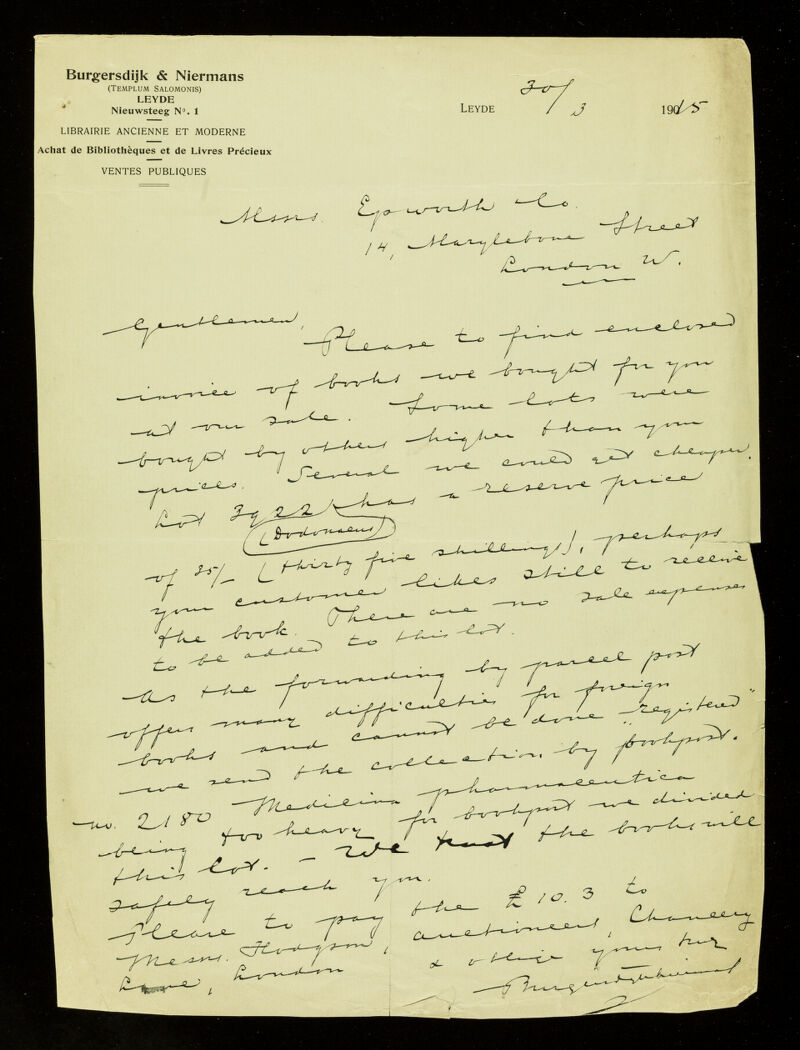 Burgersdijk & Niermans
(Templum Salomonis)
LEYDE
Nieuwsteeg No. 1
LIBRAIRIE ANCIENNE ET MODERNE
Achat de Bibliothèques et de Livres Précieux
VENTES PUBLIQUES
Leyde 30/3 1915
Messrs. Epworth & Co.
14, Marylebone Street
London W.
Gentlemen,
Please to find enclosed
invoice of books we bought for you
at our sale. Some lots were
bought by others higher than your
prices. Several we could get cheaper.
Lot 3922 has a reserve price
(Dodonaeus)
of 35/- (thirty five shillings), perhaps
your customer likes still to receive
the book. There are no sale expenses
to be added to this lot.
As the forwarding by parcel post
offers many difficulties for foreign
books and cannot be done "registered"
we send the collection by bookpost.
no. 2180 Medicina pharmaceutica
being too heavy for bookpost we divided
this lot. - We trust the books will
safely reach you.
Please to pay the £ 10.3 to
Messrs. Hodgson, auctioneers, Chancery
Lane, London & oblige yours truly
Burgersdijk & Niermans